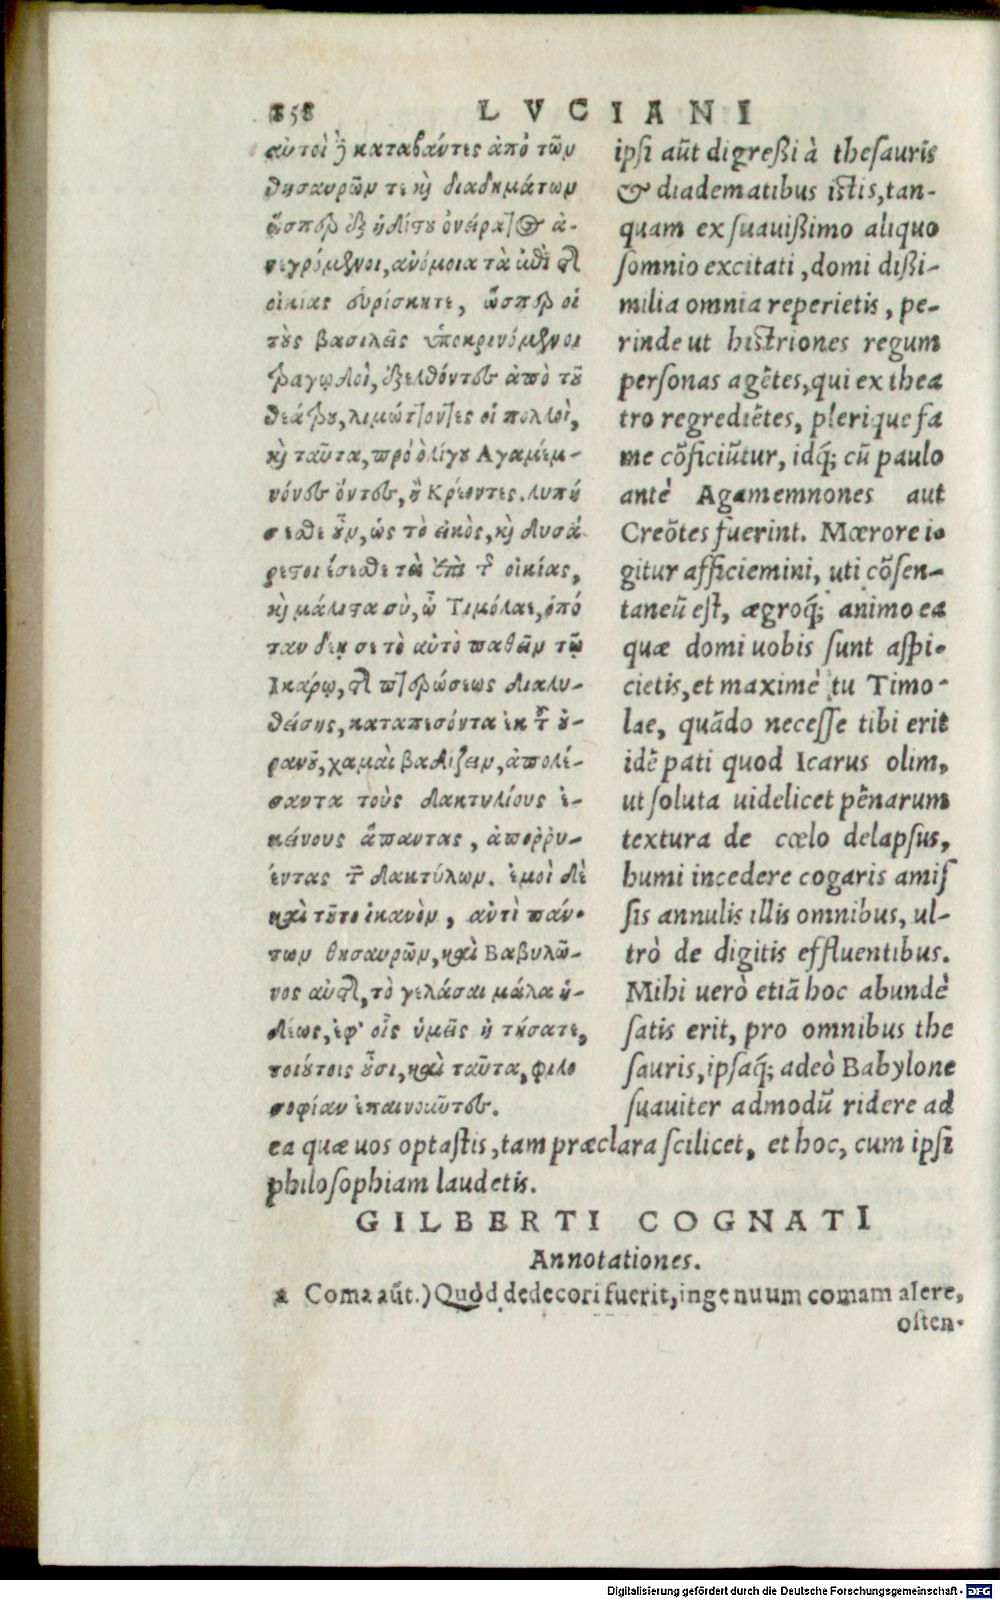 258 LVCIANI
αὐτοὶ ἢ καταβάντες ἀπὸ τῶν
θησαυρῶν τε κỳ διαδημάτων
ὥσπερ ἐξ ἡδίςου ὀνείρατος ἀ-
νεγρόμενοι, ἀνόμοια τὰ ἐπὶ τῆς
οἰκίας εὑρίσκητε, ὥσπερ οἱ
τοὺς βασιλεῖς ὑποκρινόμενοι
τραγῳδοὶ, ἐξελθόντες ἀπὸ τοῦ
θεάτρου, λιμώττοντες οἱ πολλοὶ,
κỳ ταῦτα, πρὸ ὀλίγου Αγαμέμ-
νόνες ὄντες, ἢ Κρέοντες. λυπή
σεσθε οὖν, ὡς τὸ εἰκὸς, κỳ δυσά
ρεςοι ἔσεσθε τὰ ἐπὶ τῆς οἰκίας,
κỳ μάλιςα σὺ, ὦ Τιμόλαε, ὁπό
ταν δέῃ σε τὸ αὐτὸ παθεῖν τῷ
Ικάρῳ, τῆς πτερώσεως διαλυ-
θείσης, καταπεσόντα ἐκ τοῦ οὐ-
ρανοῦ, χαμαὶ βαδίζειν, ἀπολέ-
σαντα τοὺς δακτυλίους ἐ-
κείνους ἅπαντας, ἀποῤῥυ-
έντας τῶν δακτύλων. ἐμοὶ δὲ
καὶ τοῦτο ἱκανὸν, ἀντὶ πάν-
των θησαυρῶν, καὶ Βαβυλῶ-
νος αὐτῆς, τὸ γελάσαι μάλα ἡ-
δέως, ἐφ' οἷς ὑμεῖς ᾐτήσατε,
τοιούτοις οὖσι, καὶ ταῦτα, φιλο
σοφίαν ἐπαινοῦντες.
ipsi aūt digreßi à thesauris
& diadematibus istis, tan-
quam ex suauißimo aliquo
somnio excitati, domi dißi-
milia omnia reperietis, pe-
rinde ut histriones regum
personas agētes, qui ex thea
tro regrediētes, plerique fa
me cōficiūtur, idq́; cū paulo
antè Agamemnones aut
Creōtes fuerint. Mœrore i-
gitur afficiemini, uti cōsen-
taneū est, ægroq́; animo ea
quæ domi uobis sunt aspi-
cietis, et maximè tu Timo-
lae, quādo necesse tibi erit
idē pati quod Icarus olim,
ut soluta uidelicet pēnarum
textura de cœlo delapsus,
humi incedere cogaris amis
sis annulis illis omnibus, ul-
trò de digitis effluentibus.
Mihi uerò etiā hoc abundè
satis erit, pro omnibus the
sauris, ipsaq́; adeò Babylone
suauiter admodū ridere ad
ea quæ uos optastis, tam præclara scilicet, et hoc, cum ipsi
philosophiam laudetis.
GILBERTI COGNATI
Annotationes.
a Coma aūt.) Quòd dedecori fuerit, ingenuum comam alere,
osten-
Digitalisierung gefördert durch die Deutsche Forschungsgemeinschaft - DFG